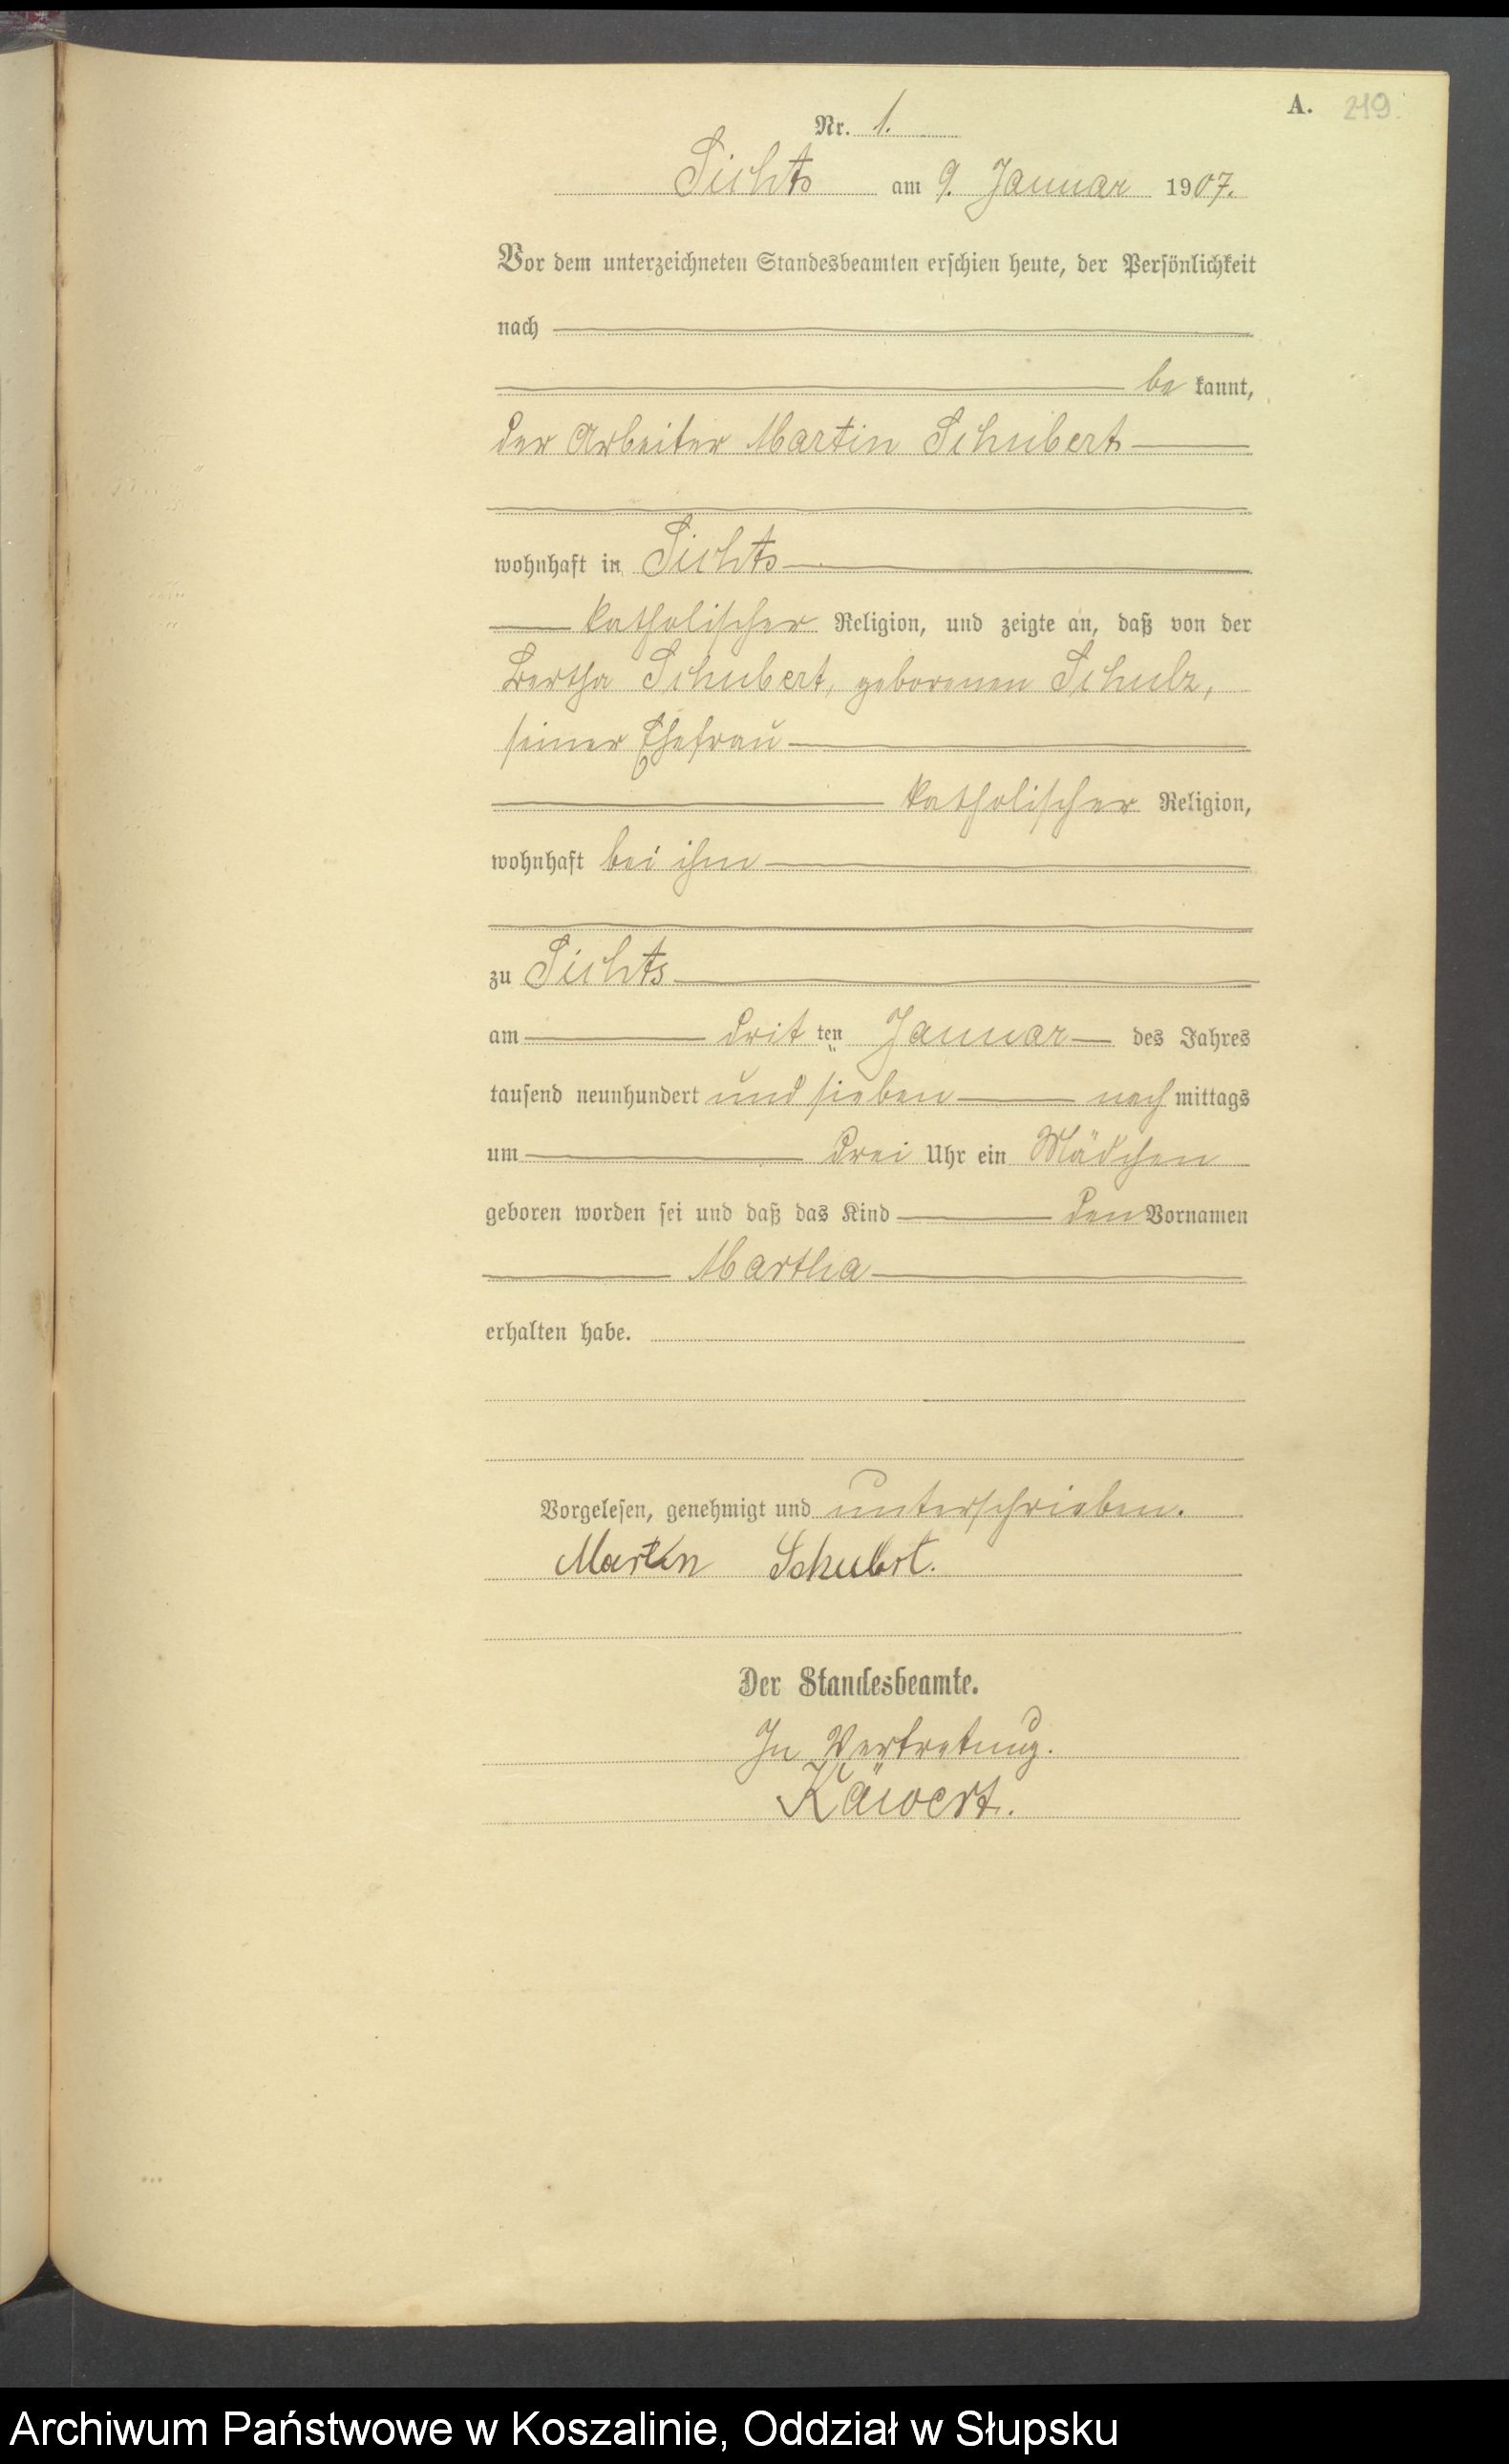 A. 219.
Nr. 1.
Sichts am 9. Januar 1907.
Vor dem unterzeichneten Standesbeamten erschien heute, der Persönlichkeit
nach
be kannt,
der Arbeiter Martin Schubert
wohnhaft in Sichts
katholischer Religion, und zeigte an, daß von der
Bertha Schubert, geborenen Schulz,
seiner Ehefrau
katholischer Religion,
wohnhaft bei ihm
zu Sichts
am drit ten Januar des Jahres
tausend neunhundert und sieben nach mittags
um drei Uhr ein Mädchen
geboren worden sei und daß das Kind den Vornamen
Martha
erhalten habe.
Vorgelesen, genehmigt und unterschrieben.
Martin Schubrt.
Der Standesbeamte.
In Vertretung.
Käwert.
Archiwum Państwowe w Koszalinie, Oddział w Słupsku